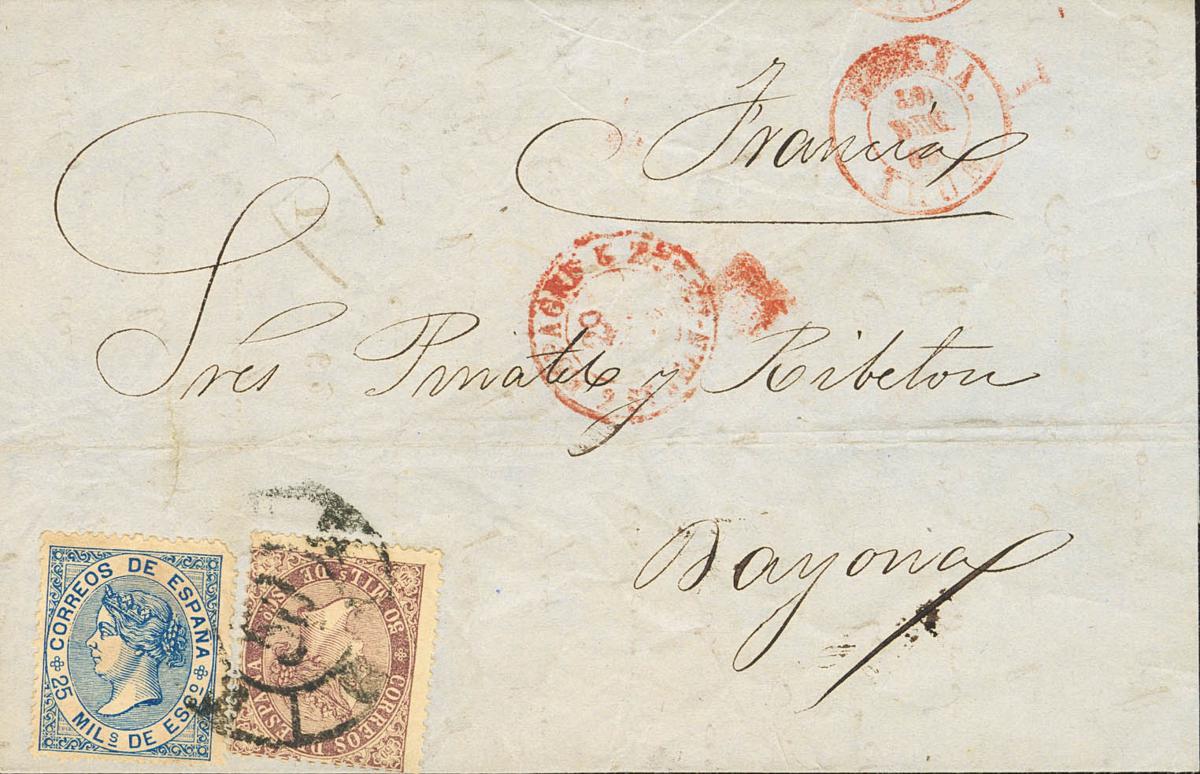 Francia
Sres Pinatel y Ribeton
Bayona
CORREOS DE ESPAÑA
25 MILS DE ESCO
CORREOS DE ESPAÑA
50 MILS DE ESCO